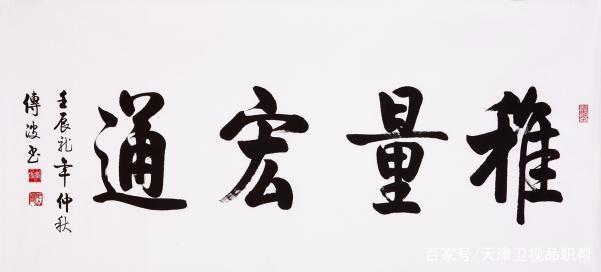 雅量宏通
壬辰龙年仲秋
傅波书
百家号/天津卫视品职帮